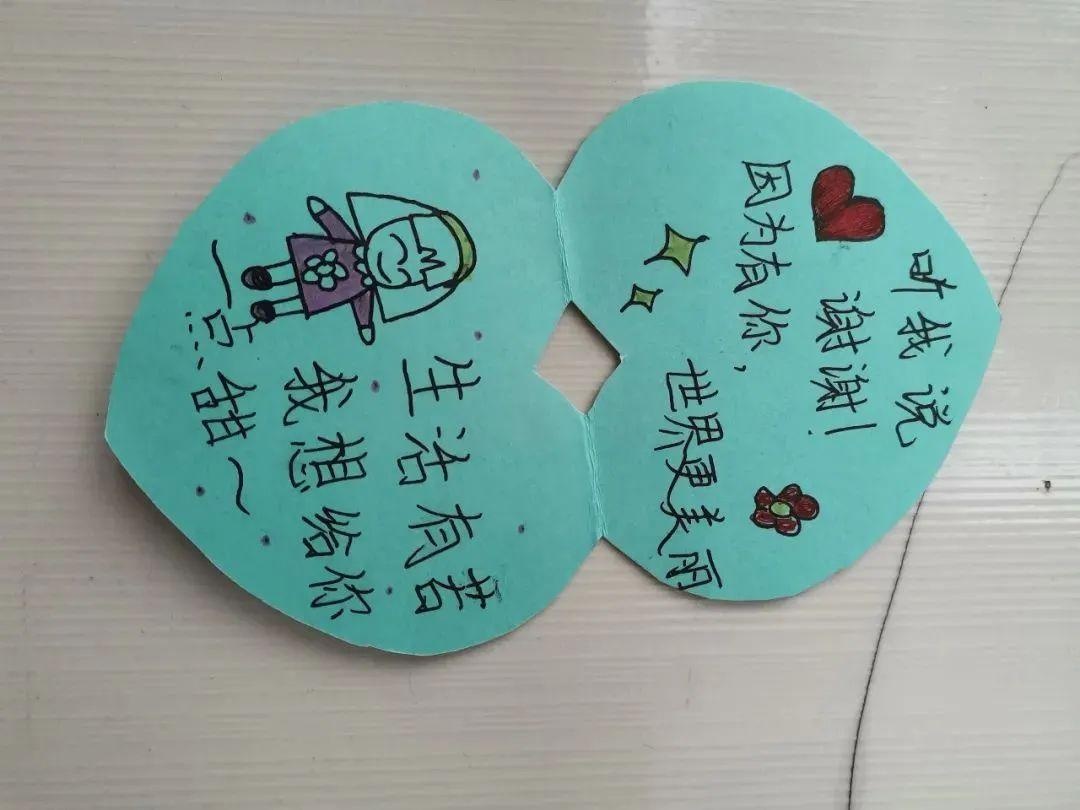 听我说
谢谢!
因为有你,
世界更美丽
生活有苦
我想给你
一点甜~